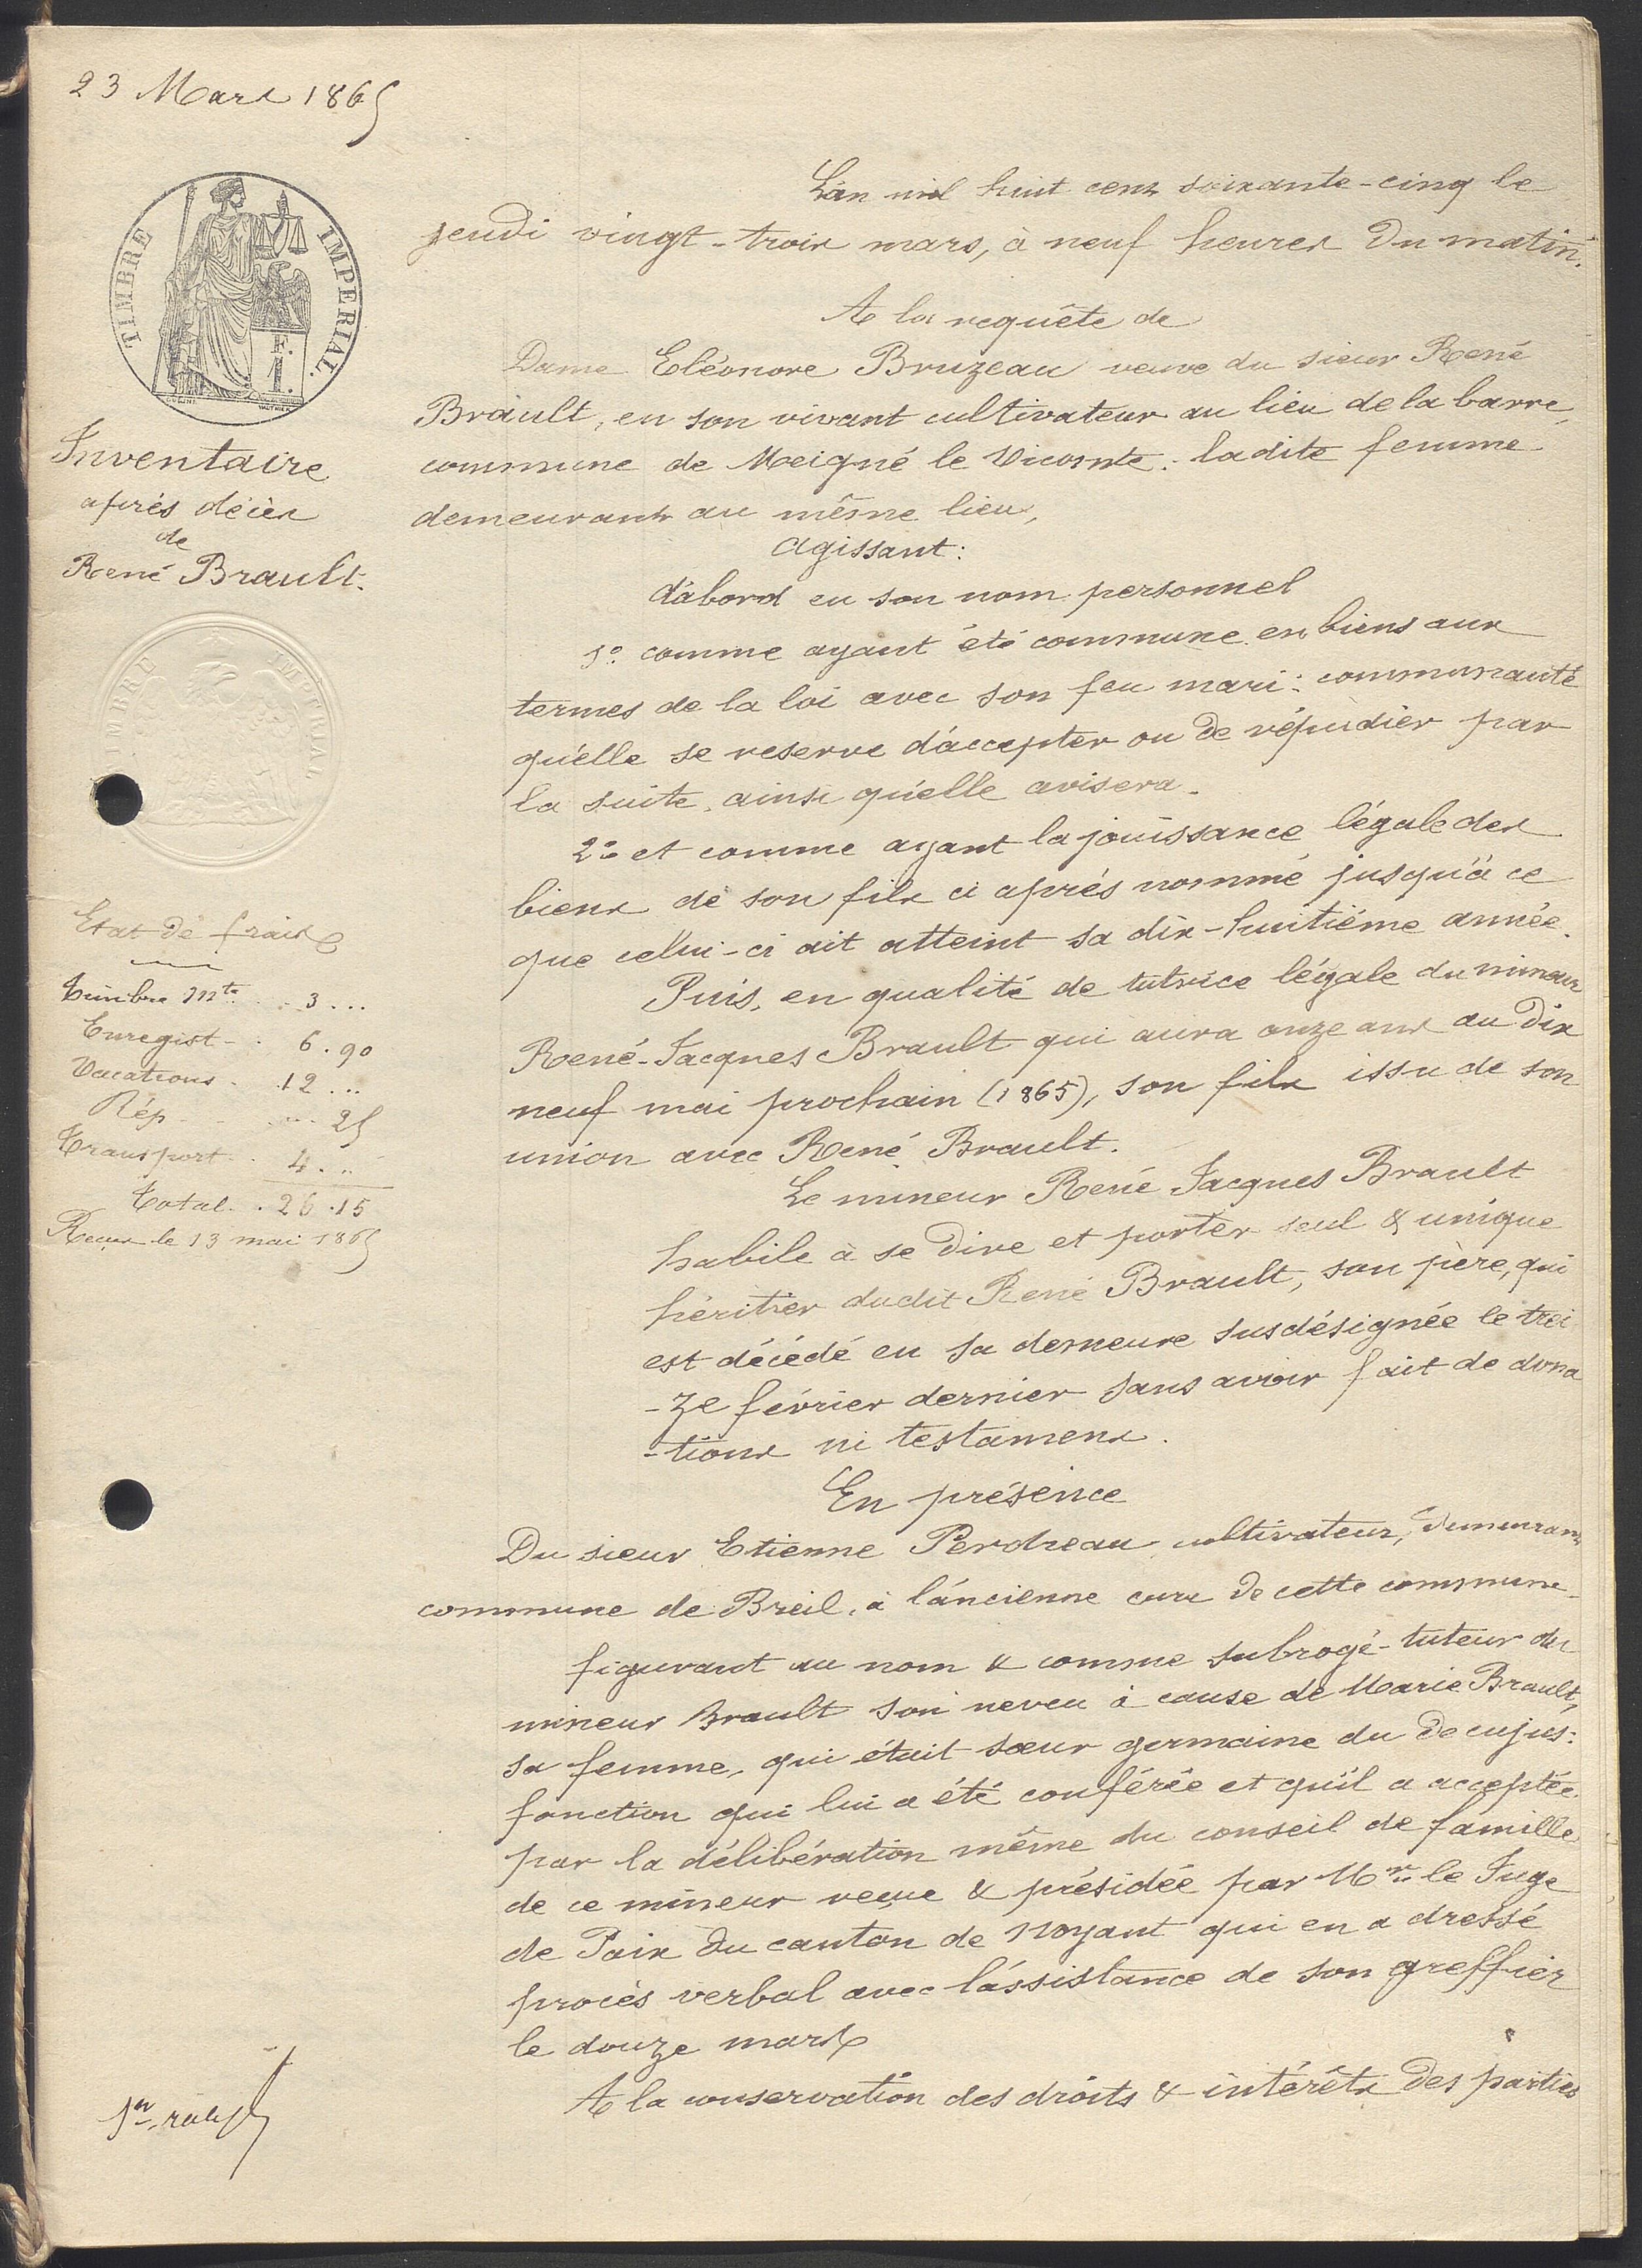 23 Mars 1865
TIMBRE IMPERIAL.
E.
1.
Inventaire
après décès
de
René Brault.
TIMBRE IMPERIAL
Etat de frais
Timbre Mte . . 3 ...
Enregist - . 6 . 90
Vacations . 12 ...
Rép . . . . 25
Transport . . 4 . ..
Total . . 26 . 15
Reçus le 13 mai 1865
L'an mil huit cent soixante-cinq le
jeudi vingt-trois mars, à neuf heures du matin.
A la requête de
Dame Eléonore Bruzeau veuve du sieur René
Brault, en son vivant cultivateur au lieu de la barre,
commune de Meigné le Vicomte: ladite femme
demeurant au même lieu,
agissant:
d'abord en son nom personnel
1o. comme ayant été commune en biens aux
termes de la loi avec son feu mari: communauté
qu'elle se reserve d'accepter ou de répudier par
la suite, ainsi qu'elle avisera.
2o et comme ayant la jouissance légale des
biens de son fils ci après nommé jusqu'à ce
que celui-ci ait atteint sa dix-huitième année.
Puis, en qualité de tutrice légale du mineur
René-Jacques Brault qui aura onze ans au dix
neuf mai prochain (1865), son fils issu de son
union avec René Brault.
Le mineur René Jacques Brault
habile à se dire et porter seul & unique
héritier dudit René Brault, son père, qui
est décédé en sa demeure susdésignée le trei
-ze février dernier sans avoir fait de dona
-tions ni testament.
En présence
Du sieur Etienne Perdreau cultivateur, demeurant
commune de Breil, à l'ancienne cure de cette commune
figurant au nom & comme subrogé-tuteur du
mineur Brault son neveu à cause de Marie Brault,
sa femme, qui était sœur germaine du De cujus:
fonction qui lui a été conférée et qu'il a acceptée
par la délibération même du conseil de famille
de ce mineur reçue & présidée par Mr le Juge
de Paix du canton de Noyant qui en a dressé
procès verbal avec l'assistance de son greffier
le douze mars
A la conservation des droits & intérêts des parties
1er